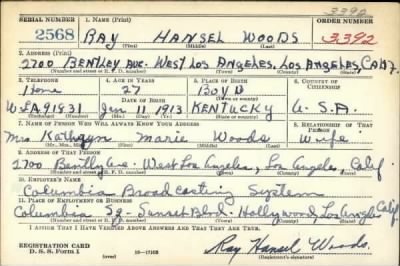 3392
SERIAL NUMBER 1. NAME (Print) ORDER NUMBER
2568 RAY HANSEL WOODS 3392
(First) (Middle) (Last)
2. ADDRESS (Print)
2700 BENTLEY AVE. WEST LOS ANGELES, LOS ANGELES, CALIF.
(Number and street or R. F. D. number) (Town) (County) (State)
3. TELEPHONE 4. AGE IN YEARS 5. PLACE OF BIRTH 6. COUNTRY OF CITIZENSHIP
Home 27 BOYD
W.LA 91831 DATE OF BIRTH Jan 11 1913 KENTUCKY U.S.A.
(Exchange) (Number) (Mo.) (Day) (Yr.) (State or country)
7. NAME OF PERSON WHO WILL ALWAYS KNOW YOUR ADDRESS 8. RELATIONSHIP OF THAT PERSON
Mrs Kathryn Marie Woods Wife
(Mr., Mrs., Miss) (First) (Middle) (Last)
9. ADDRESS OF THAT PERSON
2700 Bently Ave. West Los Angeles, Los Angeles, Calif.
(Number and street or R. F. D. number) (Town) (County) (State)
10. EMPLOYER'S NAME
Columbia Broadcasting System
11. PLACE OF EMPLOYMENT OR BUSINESS
Columbia Sq - Sunset Blvd. Hollywood, Los Angeles Calif.
(Number and street or R. F. D. number) (Town) (County) (State)
I AFFIRM THAT I HAVE VERIFIED ABOVE ANSWERS AND THAT THEY ARE TRUE.
REGISTRATION CARD
D. S. S. Form 1 16—17105 Ray Hansel Woods
(over) (Registrant's signature)